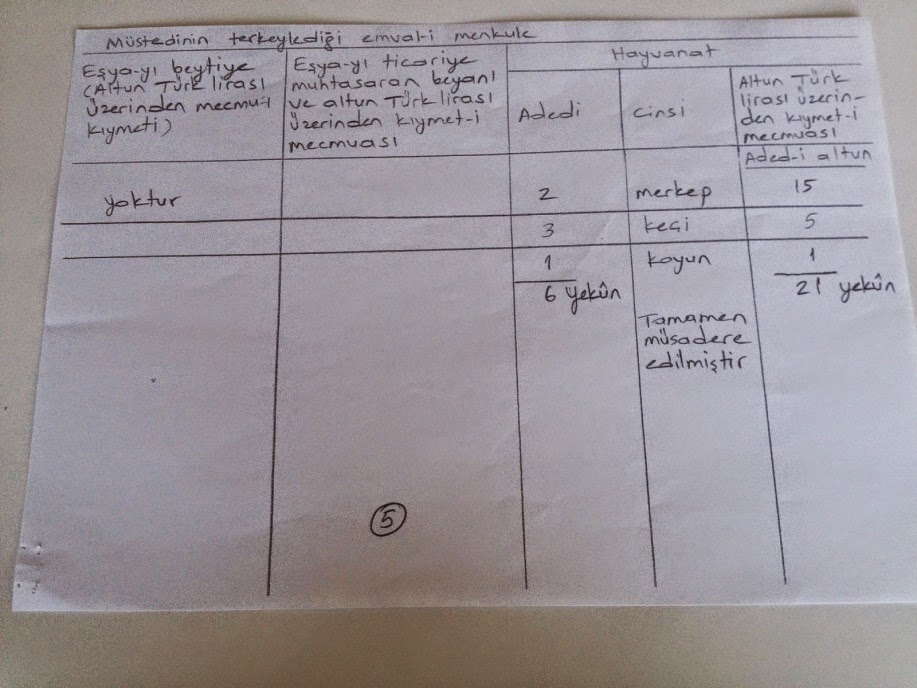 Müstedinin terkeylediği emval-i menkule
Eşya-yı beytiye
(Altun Türk lirası
üzerinden mecmu-ı
kıymeti)
Eşya-yı ticariye
muhtasaran beyanı
ve altun Türk lirası
üzerinden kıymet-i
mecmuası
Hayvanat
Adedi
Cinsi
Altun Türk
lirası üzerin-
den kıymet-i
mecmuası
Aded-i altun
yoktur
2 merkep 15
3 keçi 5
1 koyun 1
6 yekûn 21 yekûn
Tamamen
müsadere
edilmiştir
5